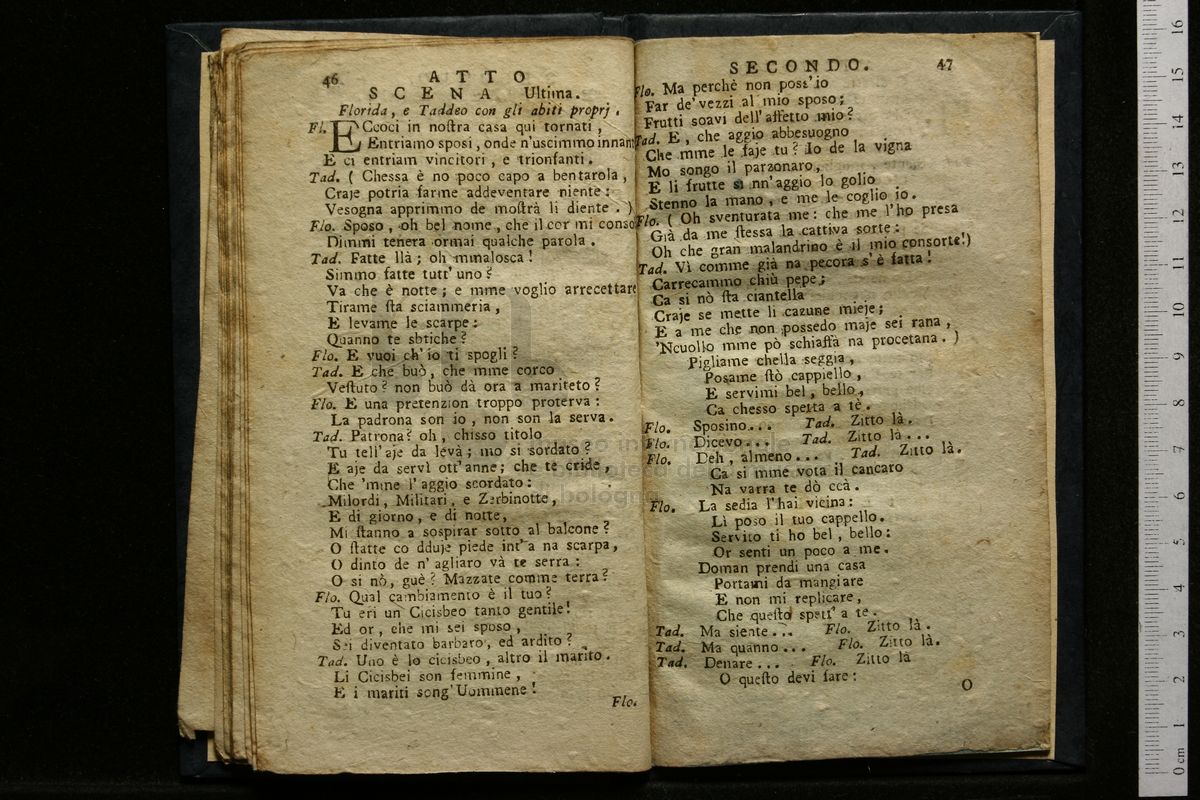 46
ATTO
SCENA Ultima.
Florida, e Taddeo con gli abiti proprj.
Fl. ECcoci in nostra casa qui tornati,
Entriamo sposi, onde n'uscimmo innam
E ci entriam vincitori, e trionfanti.
Tad. ( Chessa è no poco capo a bentarola,
Craje potria farme addeventare niente:
Vesogna apprimmo de mostrà li diente. )
Flo. Sposo, oh bel nome, che il cor mi conso
Dimmi tenera ormai qualche parola.
Tad. Fatte llà; oh mmalosca!
Simmo fatte tutt' uno?
Va che è notte; e mme voglio arrecettare
Tirame sta sciammeria,
E levame le scarpe:
Quanno te sbtiche?
Flo. E vuoi ch'io ti spogli?
Tad. E che buò, che mme corco
Vestuto? non buò dà ora a mariteto?
Flo. E una pretenzion troppo proterva:
La padrona son io, non son la serva.
Tad. Patrona? oh, chisso titolo
Tu tell'aje da levà; mo si sordato?
E aje da servì ott'anne; che te cride,
Che 'mme l'aggio scordato:
Milordi, Militari, e Zerbinotte,
E di giorno, e di notte,
Mi stanno a sospirar sotto al balcone?
O statte co dduje piede int'a na scarpa,
O dinto de n'agliaro và te serra:
O si nò, guè? Mazzate comme terra?
Flo. Qual cambiamento è il tuo?
Tu eri un Cicisbeo tanto gentile!
Ed or, che mi sei sposo,
Sei diventato barbaro, ed ardito?
Tad. Uno è lo cicisbeo, altro il marito.
Li Cicisbei son femmine,
E i mariti song'Uommene!
Flo.
SECONDO. 47
Flo. Ma perchè non poss'io
Far de'vezzi al mio sposo;
Frutti soavi dell'affetto mio?
Tad. E, che aggio abbesuogno
Che mme le faje tu? Io de la vigna
Mo songo il parzonaro,
E li frutte si nn'aggio lo golio
Stenno la mano, e me le coglio io.
Flo. ( Oh sventurata me: che me l'ho presa
Già da me stessa la cattiva sorte:
Oh che gran malandrino è il mio consorte!)
Tad. Vì comme già na pecora s'è fatta!
Carrecammo chiù pepe;
Ca si nò sta ciantella
Craje se mette li cazune mieje;
E a me che non possedo maje sei rana,
'Ncuollo mme pò schiaffà na procetana. )
Pigliame chella seggia,
Posame stò cappiello,
E servimi bel, bello,
Ca chesso spetta a tè.
Flo. Sposino... Tad. Zitto là.
Flo. Dicevo... Tad. Zitto là...
Flo. Deh, almeno... Tad. Zitto là.
Ca si mme vota il cancaro
Na varra te dò ccà.
Flo. La sedia l'hai vicina:
Lì poso il tuo cappello.
Servito ti ho bel, bello:
Or senti un poco a me.
Doman prendi una casa
Portami da mangiare
E non mi replicare,
Che questo spett' a te.
Tad. Ma siente... Flo. Zitto là.
Tad. Ma quanno... Flo. Zitto là.
Tad. Denare... Flo. Zitto là
O questo devi fare:
O